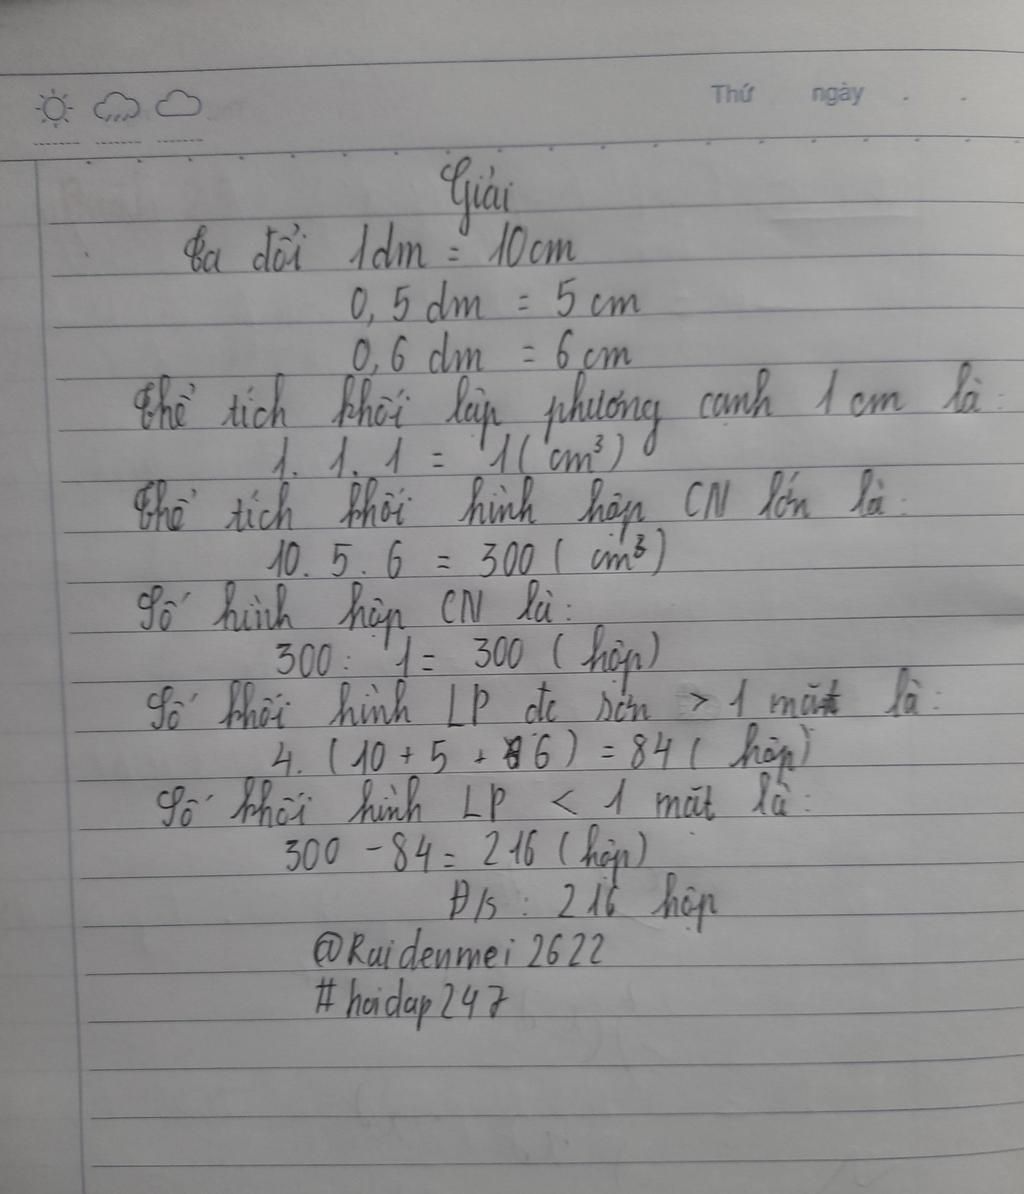 Thứ ngày
Giải
Ta đổi 1dm = 10cm
0,5 dm = 5 cm
0,6 dm = 6 cm
Thể tích khối lập phương cạnh 1 cm là:
1. 1. 1 = 1( cm³)
Thể tích khối hình hộp CN lớn là:
10. 5. 6 = 300 ( cm³)
Số hình hộp CN là:
300: 1 = 300 ( hộp)
Số khối hình LP đc sơn > 1 mặt là:
4. (10 + 5 + 6) = 84 ( hộp)
Số khối hình LP < 1 mặt là:
300 - 84 = 216 (hộp)
Đ/s : 216 hộp
@Raidenmei2622
#hoidap247